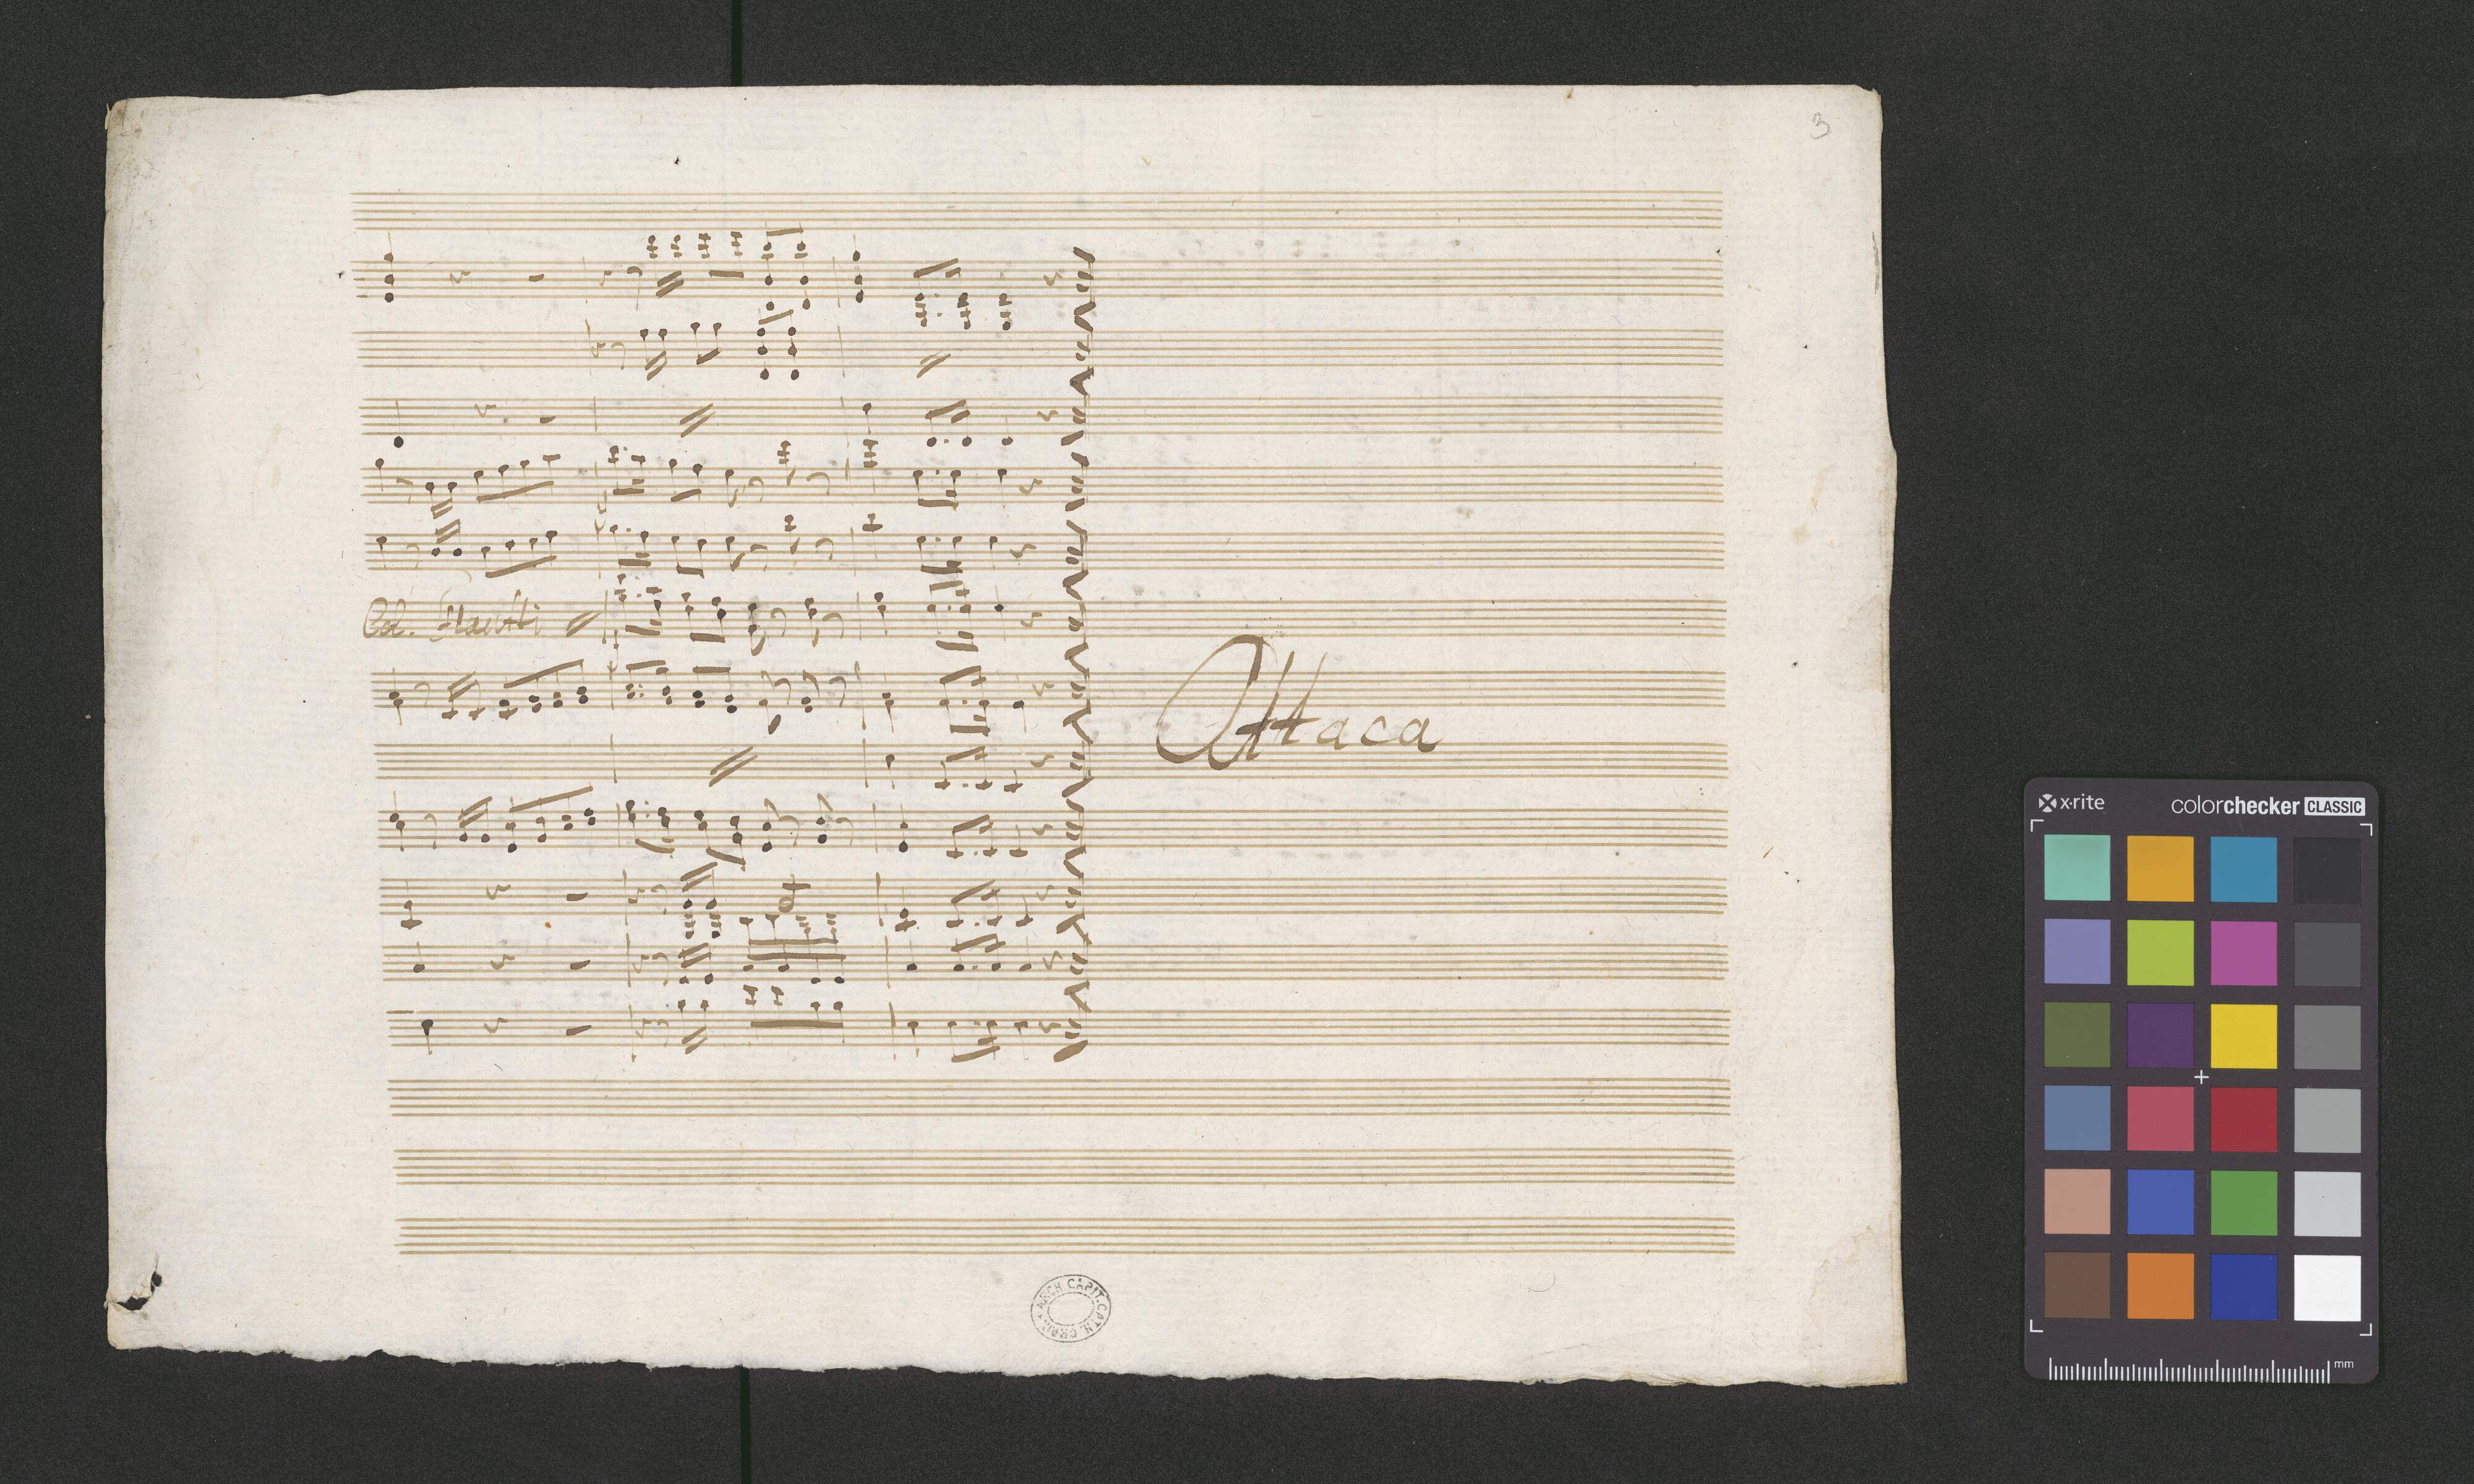 3
Col. Flauti
Attaca
ARCH. CAPIT. CATH.
x·rite
colorchecker CLASSIC
mm